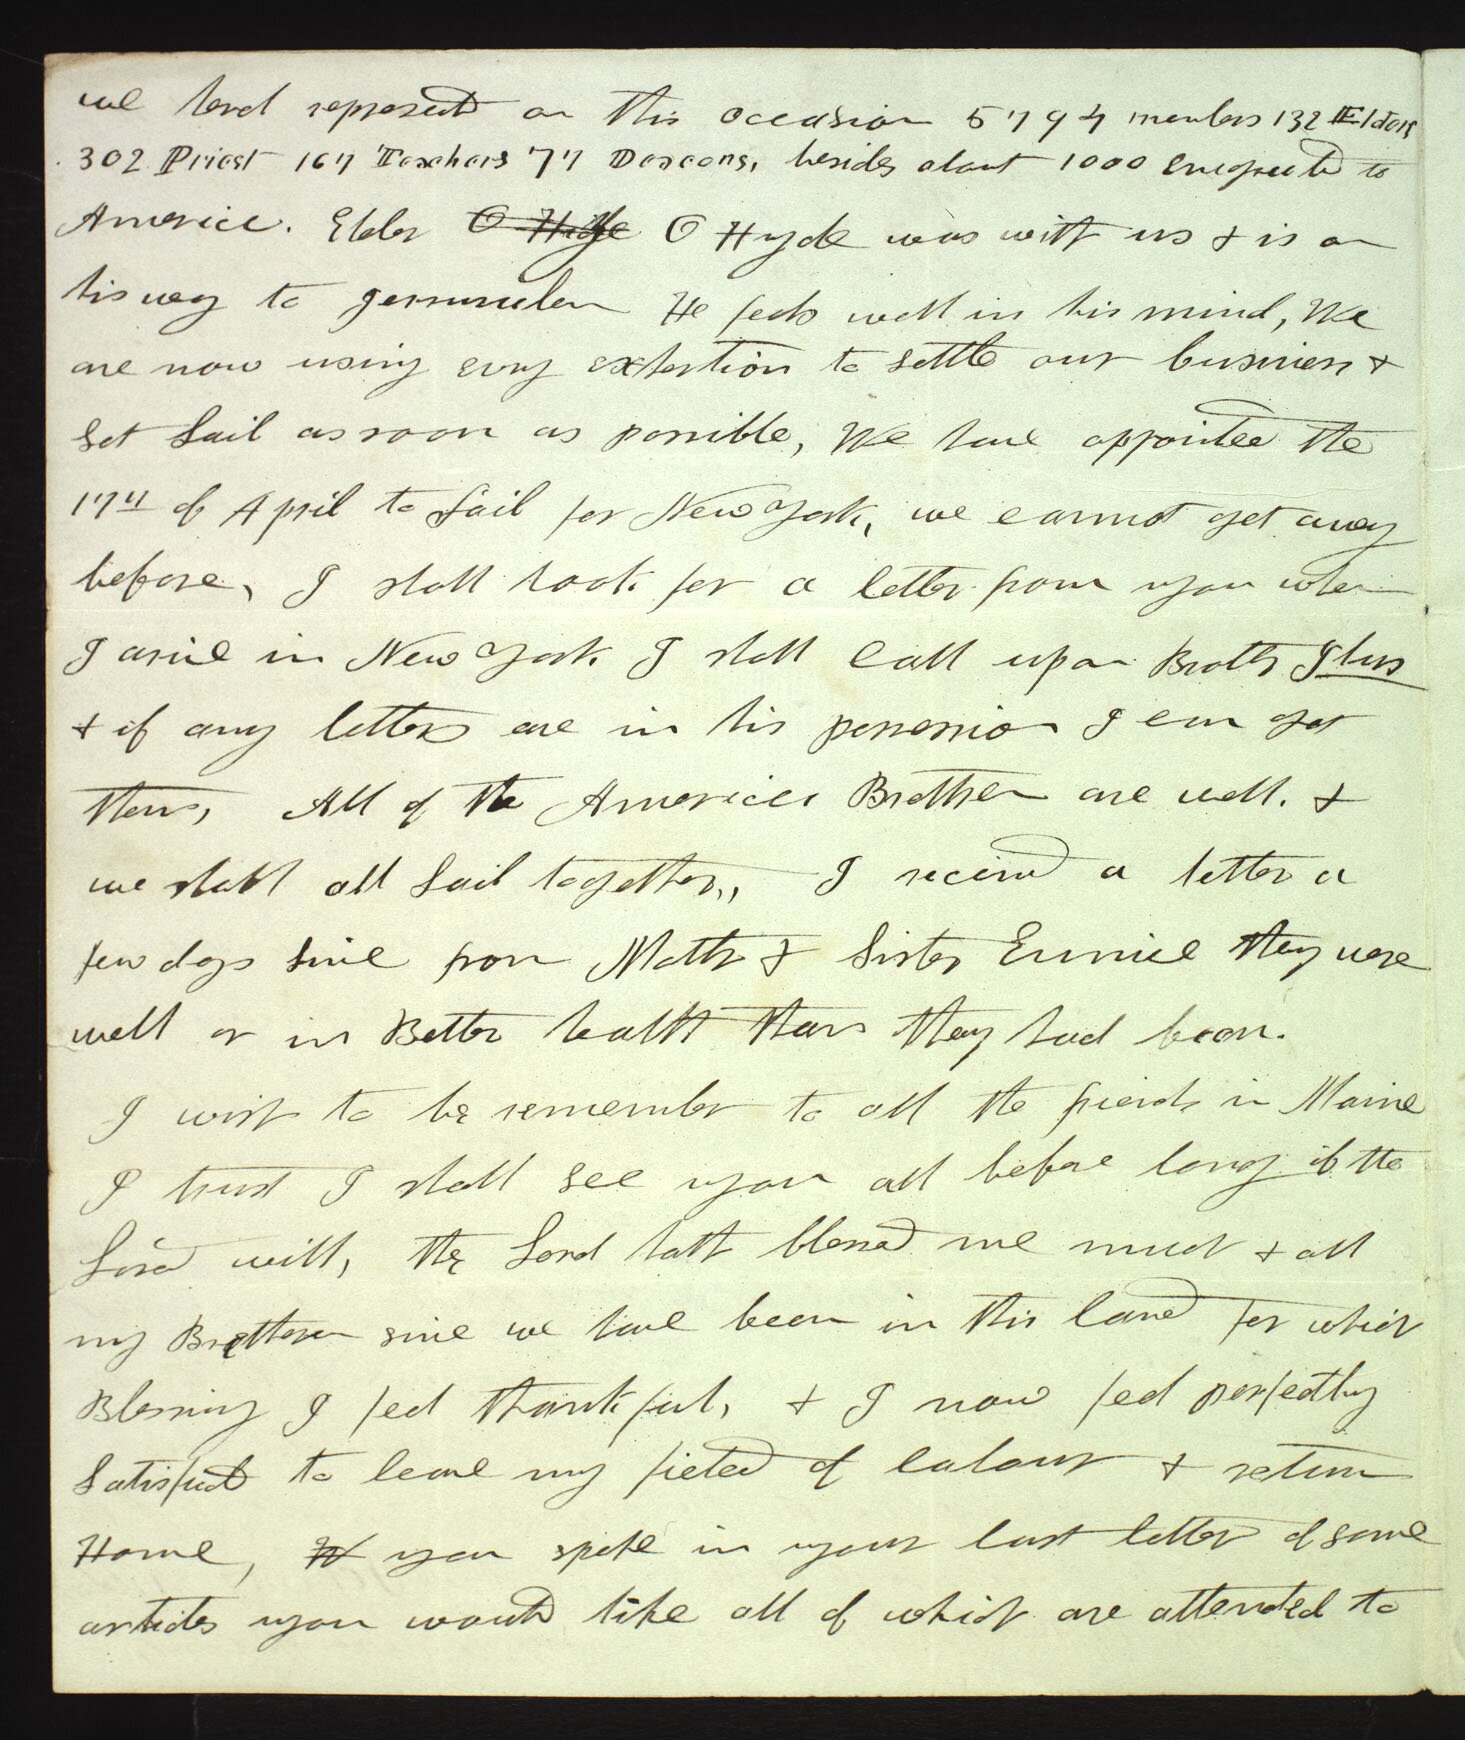 we herd represented on this occasion 5794 members 132 Elders
302 Priest 167 Teachers 77 Deacons, besides about 1000 emegrated to
America. Elder O Hyde O Hyde was with us & is on
his way to Jerrusulem He feels well in his mind, We
are now using evry exhertion to settle our business &
set Sail as soon as possible, We have appointed the
17th of April to Sail for New York, we cannot get away
before, I shall look for a letter from you when
I arive in New York I shall call upon Brother
& if any letters are in his possession I can get
them, All of the American Brethren are well. &
we shall all Sail together, I recieved a letter a
few days since from Mother & Sister Eunice they were
well or in Better health than they had been.
I wish to be remember to all the friends in Maine
I trust I shall see you all before long if the
Lord will, the Lord hath blessed me much & all
my Brethren since we have been in this land for which
Blessing I feel thankful, & I now feel perfectly
Satisfied to leave my field of labour & return
Home, W you spoke in your last letter of some
articles you would like all of which are attended to